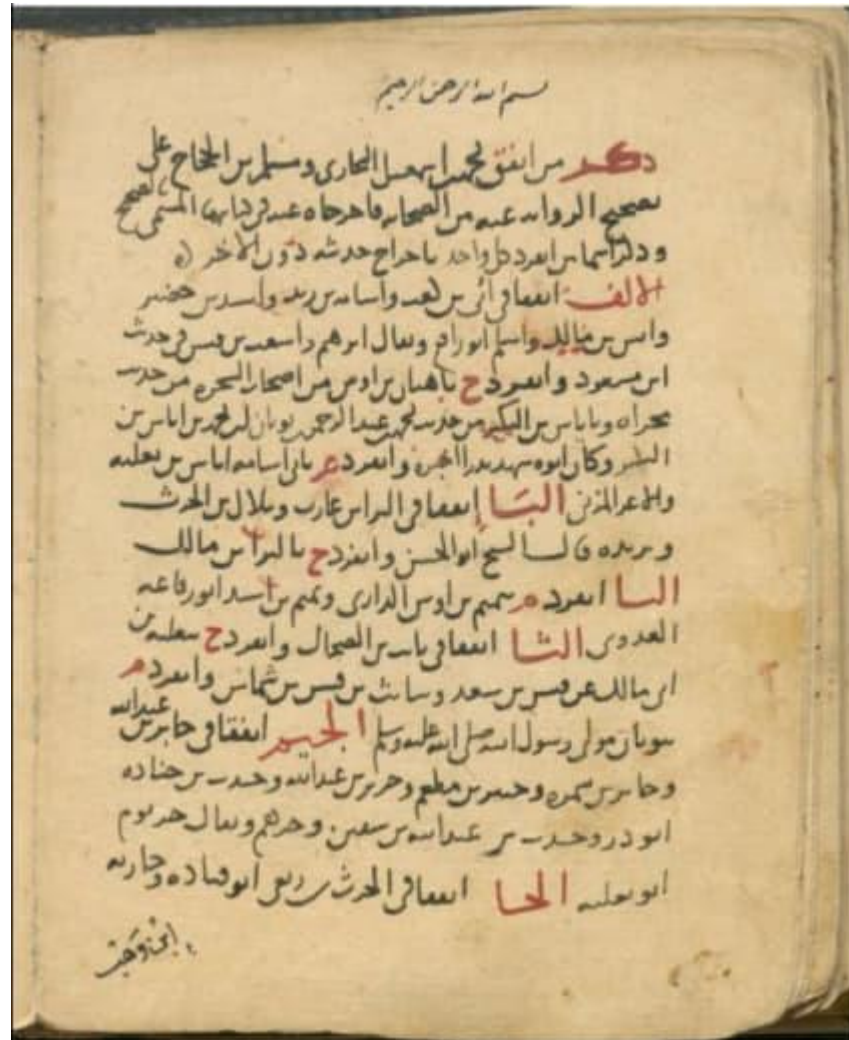 بسم الله الرحمن الرحيم
ذكر من اتفق محمد بن اسمعيل البخاري ومسلم بن الحجاج على
تصحيح الرواية عنه من الصحابة فاخرجاه عنه في كتابيهما المسمى بالصحيح
وذكر اسما من انفرد كل واحد باخراج حديثه دون الاخر
الالف اتفقا في ابي بن كعب واسامه بن زيد واسيد بن حضير
وانس بن مالك واسلم ابو رافع ويقال ابرهيم واسعد بن قيس في حديث
ابن مسعود وانفرد خ باهبان بن اوس من اصحاب الشجره من حديث
مجزاه وباياس بن البكير من حديث محمد بن عبد الرحمن بن ثوبان لمحمد بن اياس بن
البكير وكان ابوه شهد بدرا وانفرد م بابي امامه اياس بن ثعلبه
والاغر المزني البا اتفقا في البرا بن عازب وبلال بن الحرث
وبريده قال الشيخ ابو الحسن وانفرد خ بالبرا بن مالك
التا انفرد م بتميم بن اوس الداري وتميم بن اسد ابو رفاعه
العدوي الثا اتفقا في ثابت بن الضحاك وانفرد خ بثعلبه بن
ابي مالك عن قيس بن سعد وثابت بن قيس بن شماس وانفرد م
بثوبان مولى رسول الله صلى الله عليه وسلم الجيم اتفقا في جابر بن عبد الله
وجابر بن سمره وجبير بن مطعم وجرير بن عبد الله وجندب بن جناده
ابو ذر وجندب بن عبد الله بن سفين وجرهم ويقال جرثوم
ابو ثعلبه الحا اتفقا في الحرث بن ربعي ابو قتاده وحارثه
ابن وهب